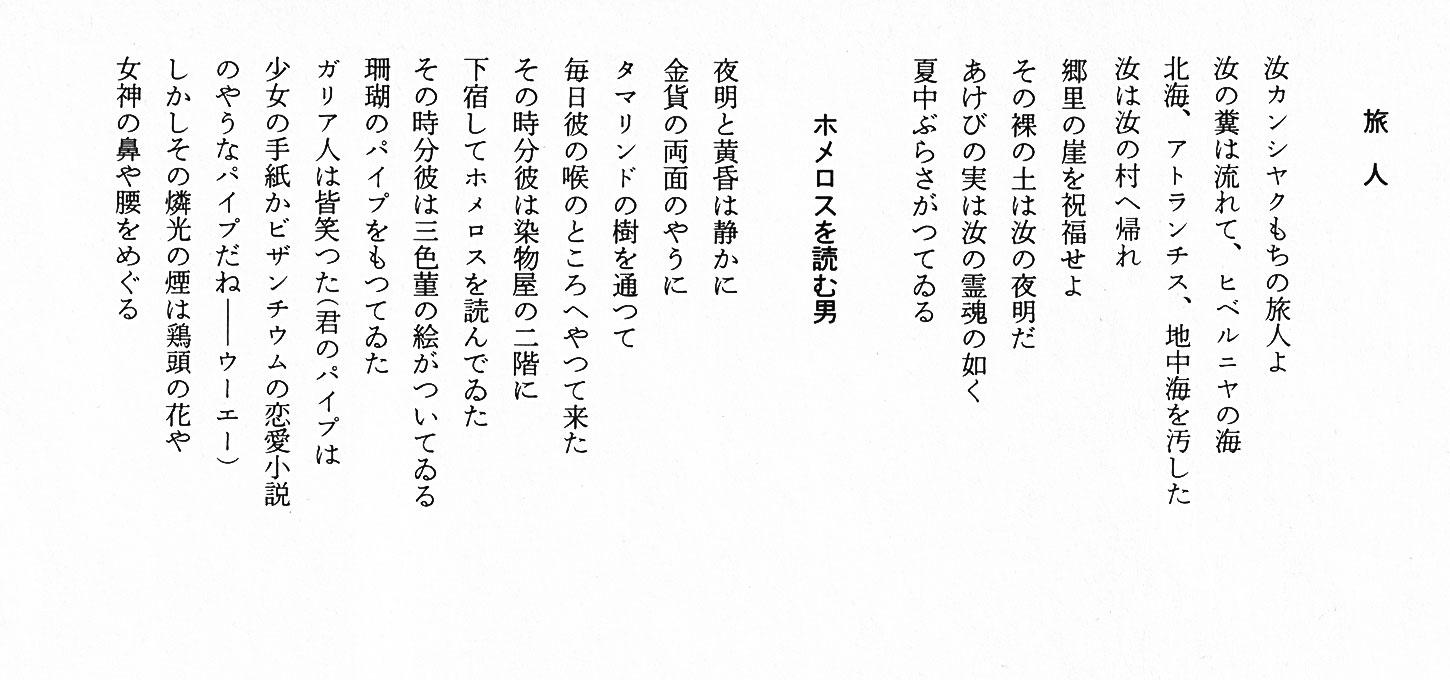 旅人
汝カンシヤクもちの旅人よ
汝の糞は流れて、ヒベルニヤの海
北海、アトランチス、地中海を汚した
汝は汝の村へ帰れ
郷里の崖を祝福せよ
その裸の土は汝の夜明だ
あけびの実は汝の霊魂の如く
夏中ぶらさがつてゐる
ホメロスを読む男
夜明と黄昏は静かに
金貨の両面のやうに
タマリンドの樹を通つて
毎日彼の喉のところへやつて来た
その時分彼は染物屋の二階に
下宿してホメロスを読んでゐた
その時分彼は三色菫の絵がついてゐる
珊瑚のパイプをもつてゐた
ガリア人は皆笑つた(君のパイプは
少女の手紙かビザンチウムの恋愛小説
のやうなパイプだね――ウーエー)
しかしその燐光の煙は鶏頭の花や
女神の鼻や腰をめぐる